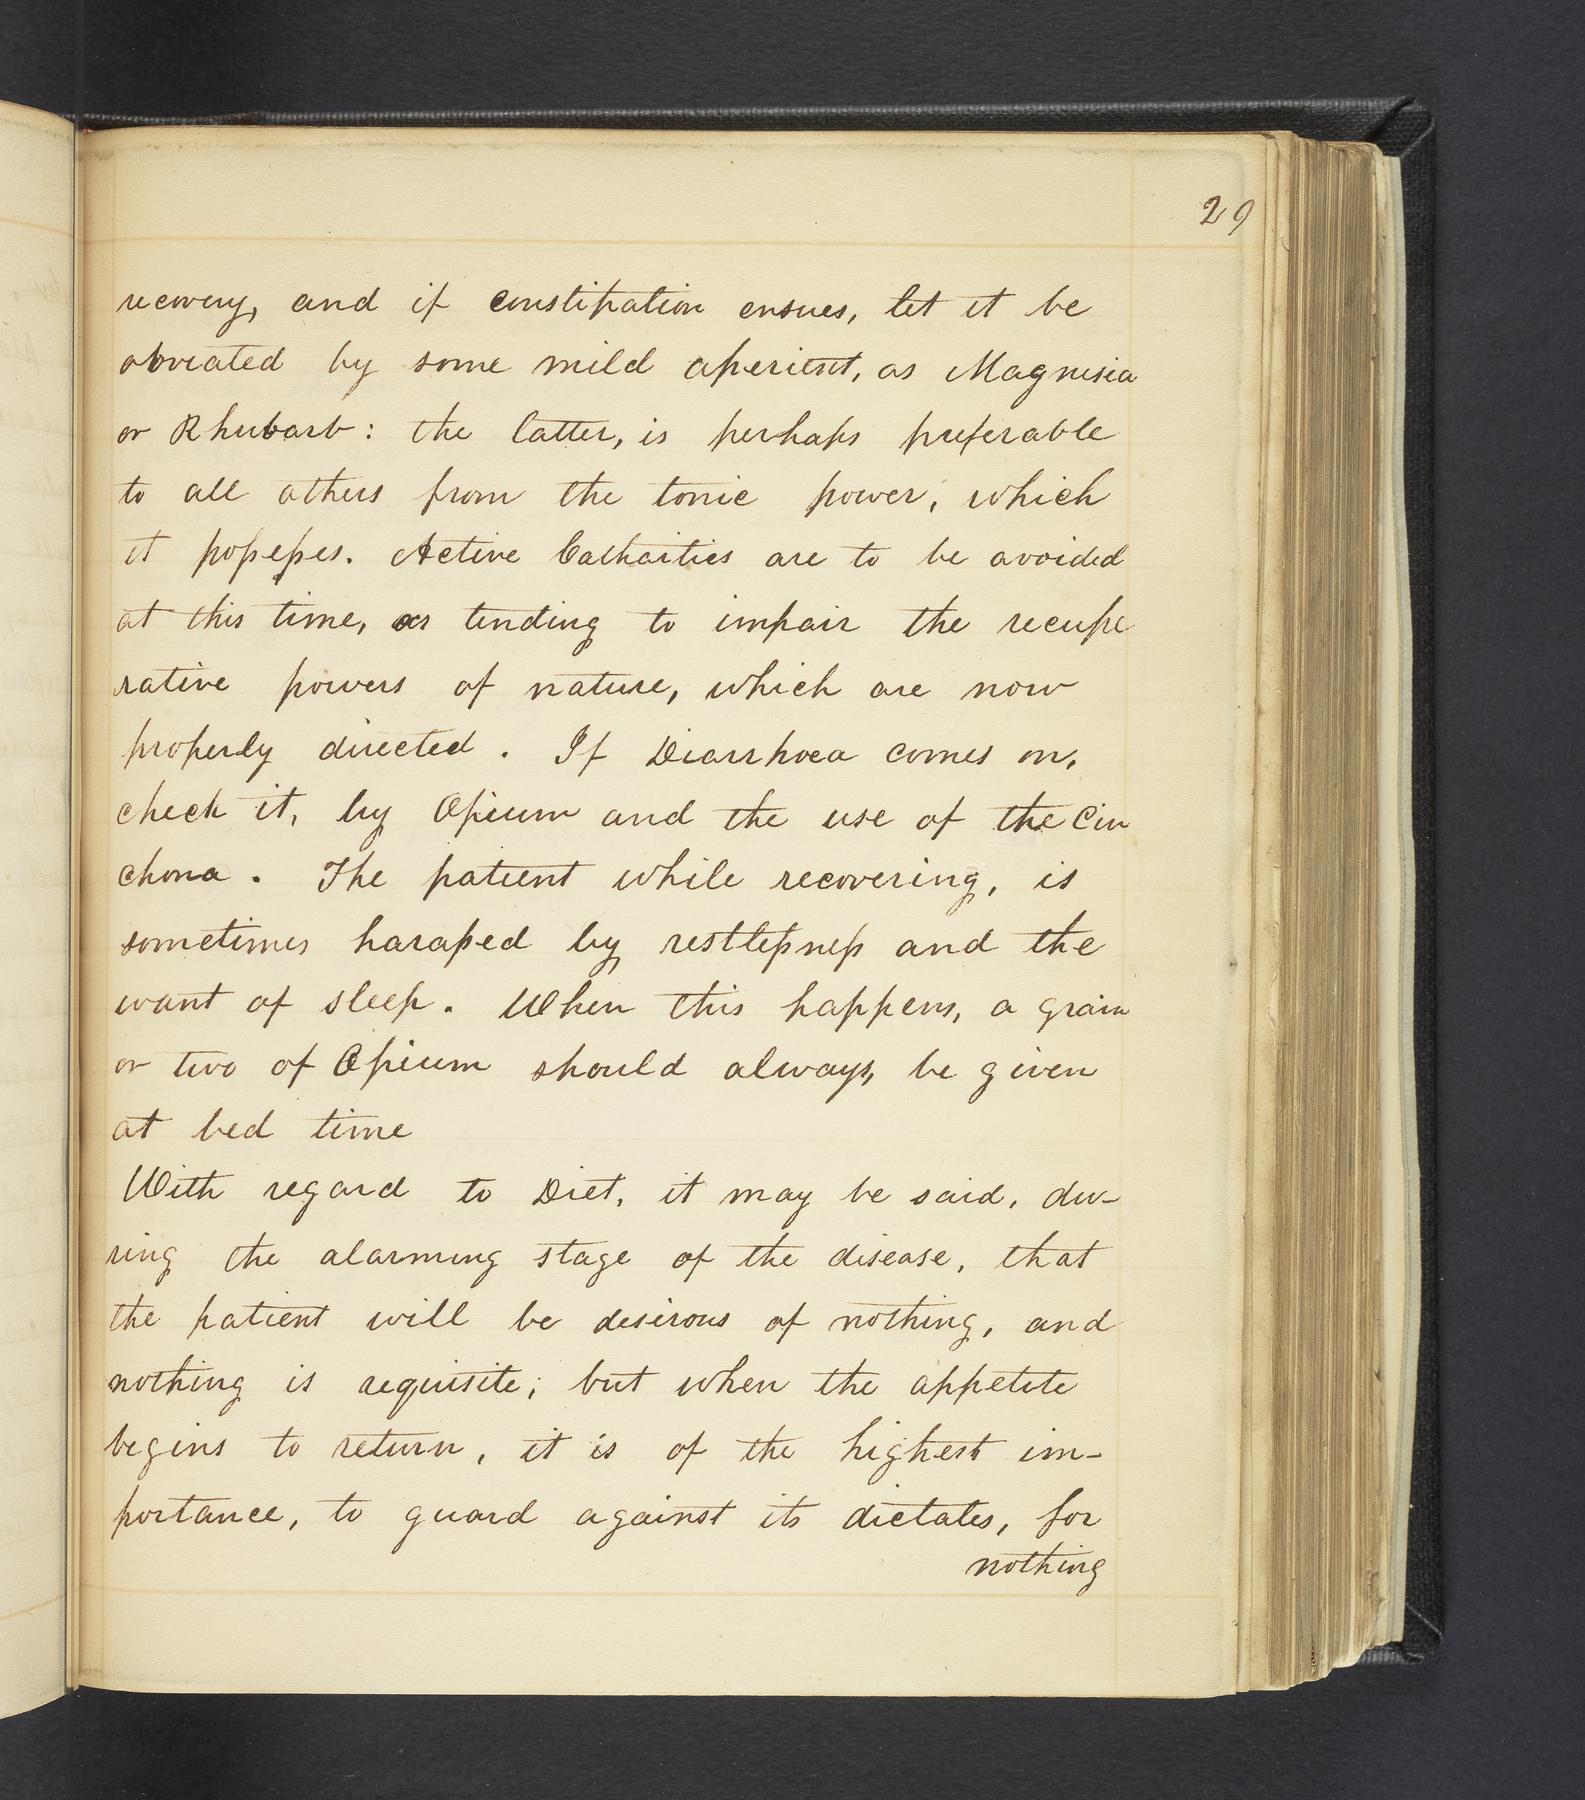 29
recovery, and if constipation ensues, let it be
obviated by some mild aperient, as Magnesia
or Rhubarb: the latter, is perhaps preferable
to all others from the tonic power, which
it possesses. Active Cathartics are to be avoided
at this time, as tending to impair the recupe
rative powers of nature, which are now
properly directed. If Diarrhoea comes on,
check it, by Opium and the use of the Cin
chona. The patient while recovering, is
sometimes harassed by restlessness and the
want of sleep. When this happens, a grain
or two of Opium should always, be given
at bed time
With regard to Diet, it may be said, du-
ring the alarming stage of the disease, that
the patient will be desirous of nothing, and
nothing is requisite; but when the appetite
begins to return, it is of the highest im-
portance, to guard against its dictates, for
nothing